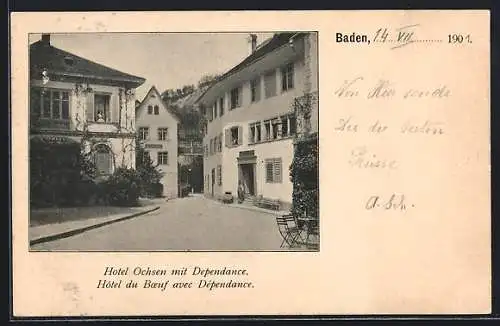 Baden, 14 VII 1901.
Von Hier sende
Dir die besten
Grüsse
A. Sch.
Hotel Ochsen mit Dependance.
Hôtel du Bœuf avec Dépendance.